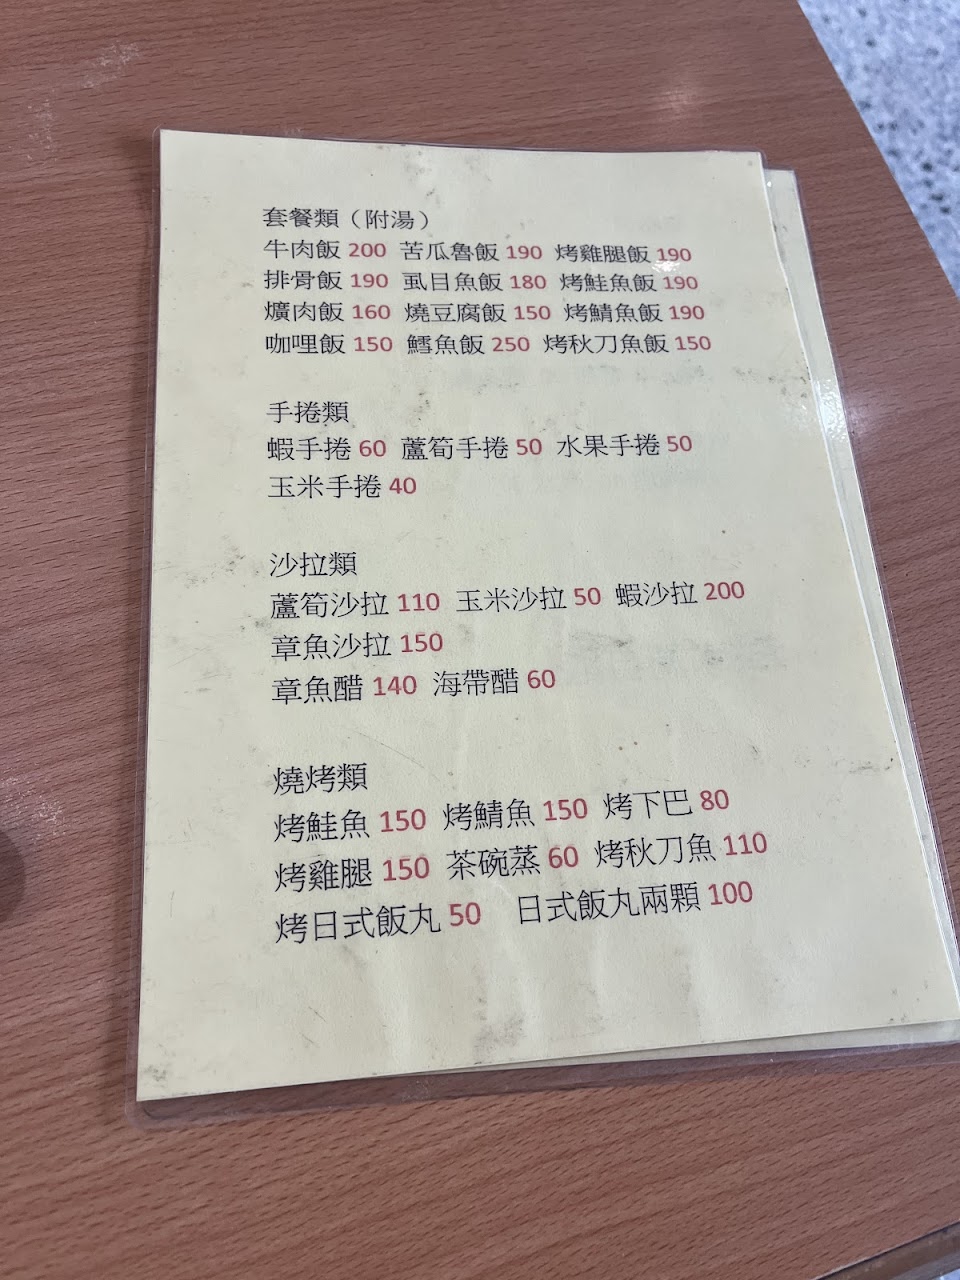 套餐類（附湯）
牛肉飯 200 苦瓜魯飯 190 烤雞腿飯 190
排骨飯 190 虱目魚飯 180 烤鮭魚飯 190
爌肉飯 160 燒豆腐飯 150 烤鯖魚飯 190
咖哩飯 150 鱈魚飯 250 烤秋刀魚飯 150
手捲類
蝦手捲 60 蘆筍手捲 50 水果手捲 50
玉米手捲 40
沙拉類
蘆筍沙拉 110 玉米沙拉 50 蝦沙拉 200
章魚沙拉 150
章魚醋 140 海帶醋 60
燒烤類
烤鮭魚 150 烤鯖魚 150 烤下巴 80
烤雞腿 150 茶碗蒸 60 烤秋刀魚 110
烤日式飯丸 50 日式飯丸兩顆 100